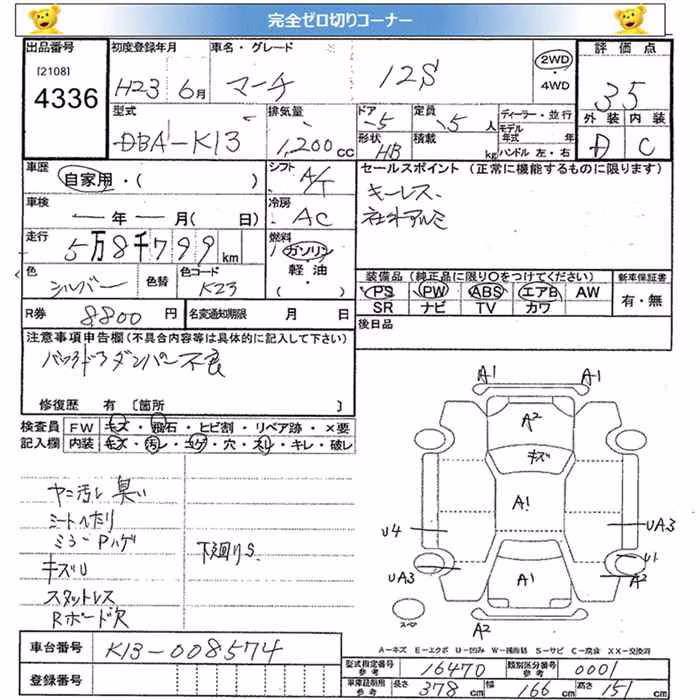 完全ゼロ切りコーナー
出品番号 初度登録年月 車名・グレード 2WD・4WD 評価点
[2108] 4336 H23 6月 マーチ 12S 3.5
型式 排気量 ドア 定員 ディーラー・並行 外装 内装
DBA-K13 1,200cc 5 5人 モデル年式 年 D C
形状 HB 積載 kg ハンドル 左・右
車歴 シフト セールスポイント (正常に機能するものに限ります)
自家用・( ) A/T キーレス
車検 冷房 社外アルミ
ー年ー月(ー日) AC
走行 燃料
5万8千799km ガソリン
軽油・( )
色 シルバー 色替 色コード K23
装備品 (純正品に限り○をつけてください) 新車保証書
PS PW ABS エアB AW 有・無
SR ナビ TV カワ
R券 8800円 名変通知期限 月 日 後日品
注意事項申告欄(不具合内容等は具体的に記入して下さい)
バックドアダンパー不良
修復歴 有〔箇所 〕
検査員 FW キズ・飛石・ヒビ割・リペア跡・×要
記入欄 内装 キズ・汚レ・コゲ・穴・スレ・キレ・破レ
A1 A1
A2
キズ
A1
U4 UA3
U1
UA3 A2
A1
スペア
A2
ヤニ汚レ 臭い
シートへたり
ミラーPハゲ
キズU
下廻りS
スタットレス
Rボード欠
A-キズ E-エクボ U-凹み W-補修跡 S-サビ C-腐食 XX-交換済
車台番号 K13-008574
型式指定番号 参考 16470 類別区分番号 参考 0001
登録番号
車庫証明用 参考 長さ 378cm 幅 166cm 高さ 151cm